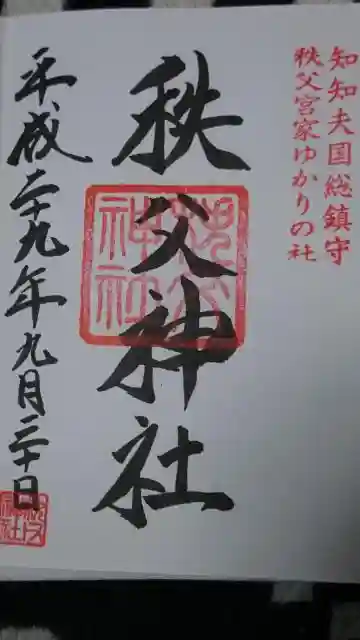 知知夫国総鎮守
秩父宮家ゆかりの社
秩父神社
秩父神社
平成二十九年九月二十日